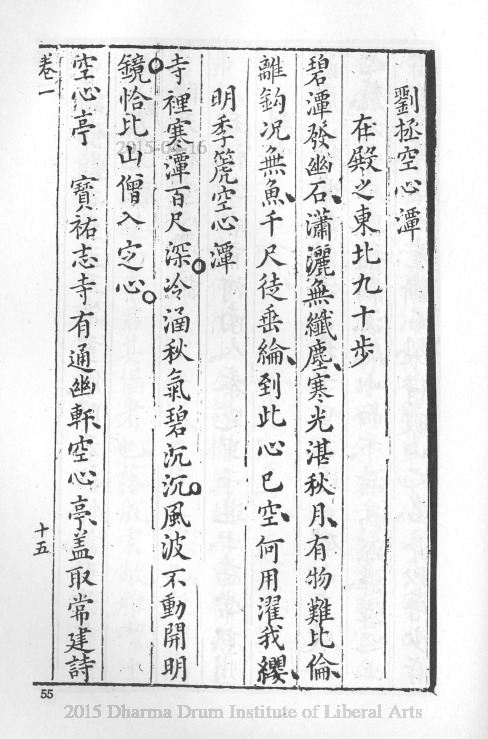 劉拯空心潭
在殿之東北九十步
碧潭發幽石瀟灑無纖塵寒光湛秋月有物難比倫
離鈎况無魚千尺徒垂綸到此心已空何用濯我纓
明季篪空心潭
寺裡寒潭百尺深冷涵秋氣碧沉沉風波不動開明
鏡恰比山僧入定心
空心亭 寶祐志寺有通幽軒空心亭盖取常建詩
卷一
十五
55
2015-04-16
2015 Dharma Drum Institute of Liberal Arts